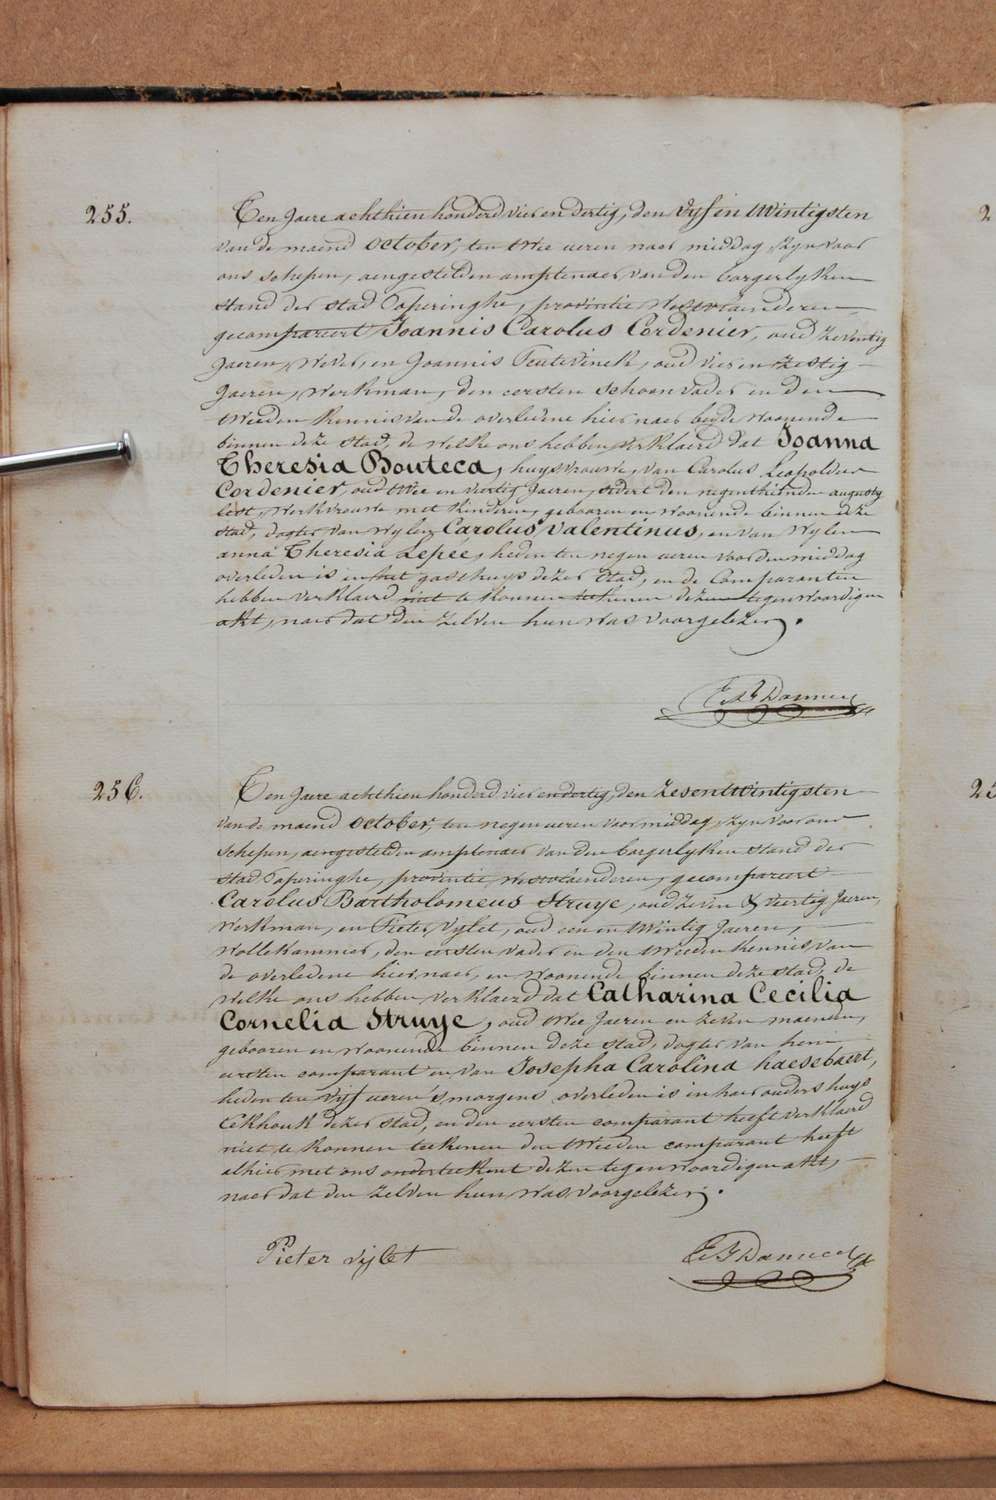 255.
Ten Jaere achthien honderd vier en dertig, den vyf en twintigsten
van de maend october, ten twee ueren naer middag, zyn voor
ons schepen, aengestelden amptenaer van den borgerlyken
stand der stad Poperinghe, provintie Westvlaenderen
gecompareert Joannis Carolus Cordenier, oud zeventig
Jaeren, wever, en Joannis Feutevinck, oud vier en zestig
Jaeren, werkman, den eersten schoonvader en den
tweeden kennis van de overledene hier naer beyde woonende
binnen deze stad, de welke ons hebben verklaerd dat Joanna
Theresia Bouteca, huysvrouwe, van Carolus Leopoldus
Cordenier, oud twee en viertig Jaeren, sedert den negenthienden augusty
lest, werkvrouwe met kinderen, gebooren en woonende binnen deze
stad, dogter van wylen Carolus valentinus, en van wylen
anna Theresia Lepée, heden ten negen ueren voor den middag
overleden is in het gasthuys dezer stad, en de Comparanten
hebben verklaerd niet te konnen teekenen dezen tegenwoordigen
akt, naer dat den zelven hun was voorgelezen.
256.
Ten Jaere achthien honderd vier en dertig, den zes en twintigsten
van de maend october, ten negen ueren voor middag, zyn voor ons
schepen, aengestelden amptenaer van den borgerlyken stand der
stad Poperinghe, provintie Westvlaenderen, gecompareert
Carolus Bartholomeus Struye, oud zeven & viertig Jaeren,
werkman, en Pieter Vylet, oud een en twintig Jaeren,
wollekammer, den eersten vader en den tweeden kennis van
de overledene hier naer, en woonende binnen deze stad, de
welke ons hebben verklaerd dat Catharina Cecilia
Cornelia Struye, oud twee Jaeren en zeven maenden,
gebooren en woonende binnen deze stad, dogter van hem
eersten comparant en van Josepha Carolina haesebaert,
heden ten vyf ueren s'morgens overleden is in haer ouders huys
Eekhoek dezer stad, en den eersten comparant heeft verklaerd
niet te konnen teekenen den tweeden comparant heeft
alhier met ons onderteekent dezen tegenwoordigen akt,
naer dat den zelven hun was voorgelezen.
Pieter vijlet